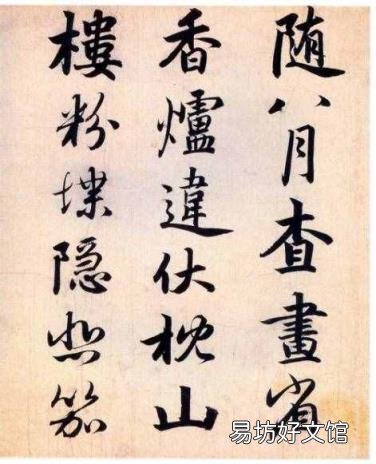 随八月查畫省
香爐違伏枕山
樓粉堞隐悲笳
易坊好文馆